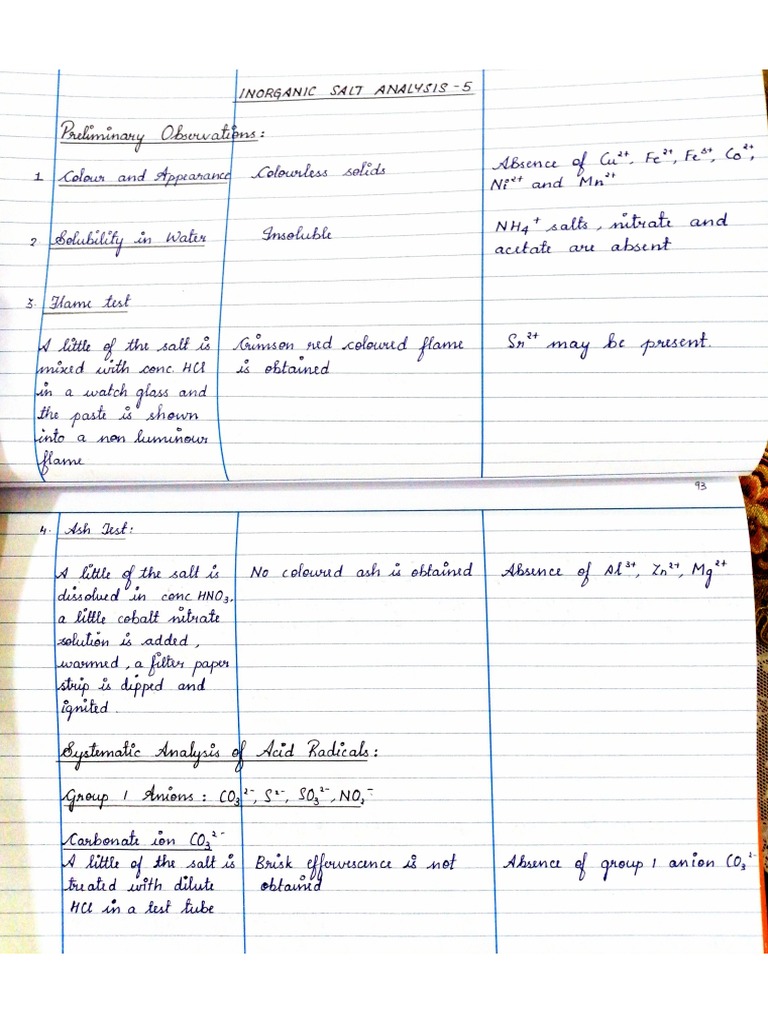 INORGANIC SALT ANALYSIS - 5
Preliminary Observations:
1 Colour and Appearance
Colourless solids
Absence of Cu²⁺, Fe²⁺, Fe³⁺, Co²⁺,
Ni²⁺ and Mn²⁺
2 Solubility in Water
Insoluble
NH₄⁺ salts, nitrate and
acetate are absent
3. Flame test
A little of the salt is
mixed with conc. HCl
in a watch glass and
the paste is shown
into a non luminour
flame
Crimson red coloured flame
is obtained
Sr²⁺ may be present.
93
4. Ash Test:
A little of the salt is
dissolved in conc HNO₃,
a little cobalt nitrate
solution is added,
warmed, a filter paper
strip is dipped and
ignited.
No coloured ash is obtained
Absence of Al³⁺, Zn²⁺, Mg²⁺
Systematic Analysis of Acid Radicals:
Group 1 Anions: CO₃²⁻, S²⁻, SO₃²⁻, NO₂⁻
Carbonate ion CO₃²⁻
A little of the salt is
treated with dilute
HCl in a test tube
Brisk effervescence is not
obtained
Absence of group 1 anion CO₃²⁻